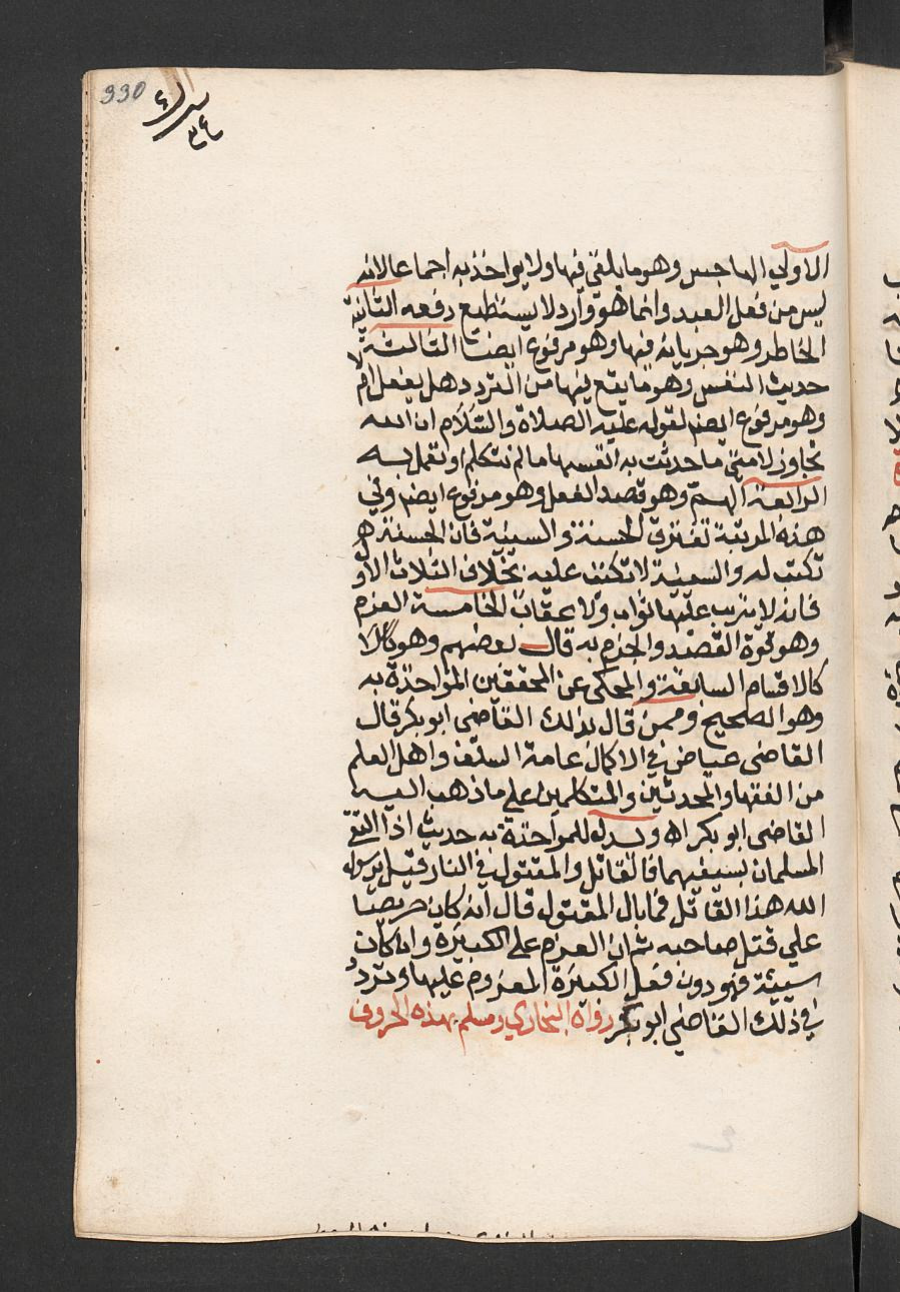 330
الاولي الهاجس وهو ما يلقي فيها ولا يواخذ به اجماعا لانه
ليس من فعل العبد وانما هو وارد لا يستطيع دفعه الثانية
الخاطر وهو جريانه فيها وهو مرفوع ايضا الثالثة
حديث النفس وهو ما يقع فيها من التردد هل يفعل ام لا
وهو مرفوع ايضا لقوله عليه الصلاة والسلام ان الله
تجاوز لامتي ما حدثت به انفسها ما لم تتكلم او تعمل به
الرابعة الهم وهو قصد الفعل وهو مرفوع ايضا وفي
هذه المرتبة تفترق الحسنة والسيئة فان الحسنة
تكتب له والسيئة لا تكتب عليه بخلاف الثلاث الاو
فانه لا يترتب عليها ثواب ولا عقاب الخامسة العزم
وهو قوة القصد والجزم به قال بعضهم وهو كالا
كالاقسام السابقة والمحكي عن المحققين المواخذة به
وهو الصحيح وممن قال بذلك القاضي ابو بكر قال
القاضي عياض في الاكمال عامة السلف واهل العلم
من الفقها والمحدثين والمتكلمين علي ما ذهب اليه
القاضي ابو بكر اه ويدل للمواخذة به حديث اذا التقي
المسلمان بسيفيهما فالقاتل والمقتول في النار قيل يرسول
الله هذا القاتل فما بال المقتول قال انه كان حريصا
علي قتل صاحبه ثم ان العزم علي الكبيرة وان كان
سيئة فهو دون فعل الكبيرة المعزوم عليها وتردد
في ذلك القاضي ابو بكر رواه البخاري ومسلم بهذه الحروف